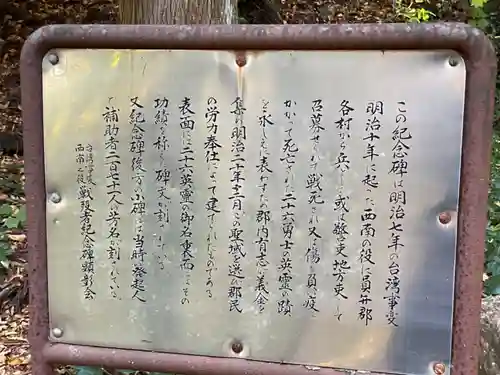 この紀念碑は明治七年の台湾事変
明治十年に起った西南の役に員弁郡
各村から兵として或は警吏地方吏として
召募せられて戦死され又は傷を負い疫に
かかって死亡された二十六勇士の英霊の蹟
を永しえに表わすため郡内有志が義金を
集め明治二十年十二月この聖域を選び郡民
の労力奉仕によって建てられたものである
表面に二十六英霊の御名裏面にその
功績を称える碑文が刻まれている
又紀念碑後方の小碑には当時発起人
補助者二百三十八人の芳名が刻まれている
台湾事変
西南之役
戦歿者紀念碑顕彰会